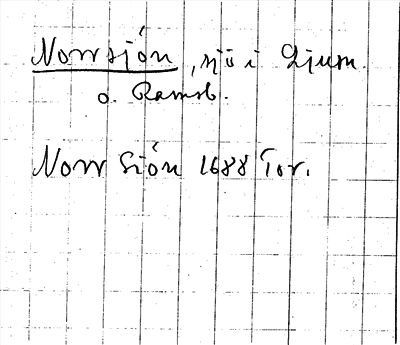 Norrsjön, sjö i Ljusn.
o. Ramsb.
Norr Siön 1688 Tor.